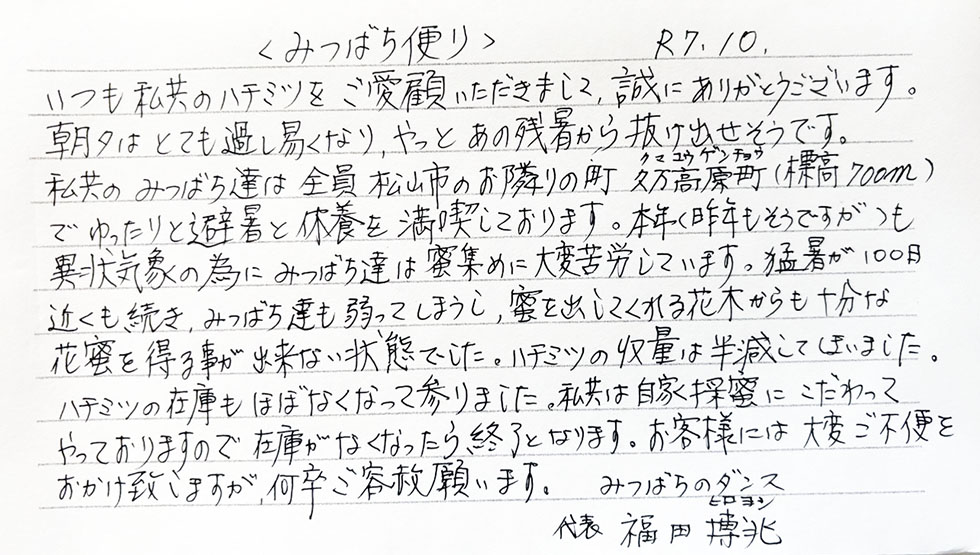 <みつばち便り> R7.10.
いつも私共のハチミツをご愛顧いただきまして、誠にありがとうございます。
朝夕はとても過し易くなり、やっとあの残暑から抜け出せそうです。
クマコウゲンチョウ
私共のみつばち達は全員松山市のお隣りの町久万高原町(標高700m)
でゆったりと避暑と休養を満喫しております。本年(昨年もそうですが)も
異状気象の為にみつばち達は蜜集めに大変苦労しています。猛暑が100日
近くも続き、みつばち達も弱ってしまうし、蜜を出してくれる花木からも十分な
花蜜を得る事が出来ない状態でした。ハチミツの収量は半減してしまいました。
ハチミツの在庫もほぼなくなって参りました。私共は自家採蜜にこだわって
やっておりますので在庫がなくなったら終了となります。お客様には大変ご不便を
おかけ致しますが、何卒ご容赦願います。 みつばちのダンス
ヒロヨシ
代表 福田博兆